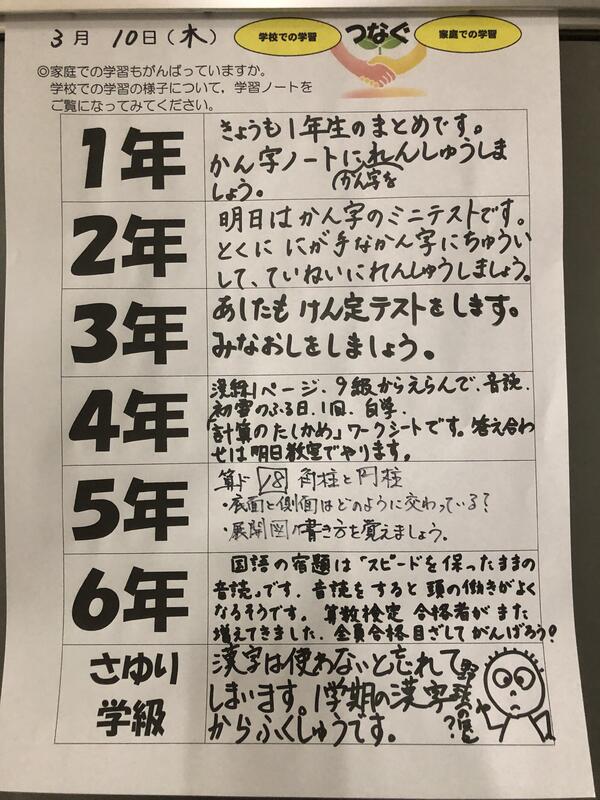 3月 10日(木)
学校での学習
つなぐ
家庭での学習
◎家庭での学習もがんばっていますか。
学校での学習の様子について,学習ノートを
ご覧になってみてください。
1年
きょうも1年生のまとめです。
かん字ノートにれんしゅうしま
かん字を
しょう。
2年
明日はかん字のミニテストです。
とくに にが手なかん字にちゅうい
して、ていねいにれんしゅうしましょう。
3年
あしたも けん定テストをします。
みなおしをしましょう。
4年
漢練1ページ、9級からえらんで、音読、
初雪のふる日、1回、自学、
「計算のたしかめ」ワークシートです。答え合わ
せは明日教室でやります。
5年
算ド 18 角柱と円柱
・底面と側面はどのように交わっている?
・展開図の書き方を覚えましょう。
6年
国語の宿題は「スピードを保ったままの
音読」です。音読をすると頭の働きがよく
なるそうです。算数検定 合格者がまた
増えてきました。全員合格目ざしてがんばろう!
さゆり
学級
漢字は使わないと忘れて
しまいます。1学期の漢字
からふくしゅうです。